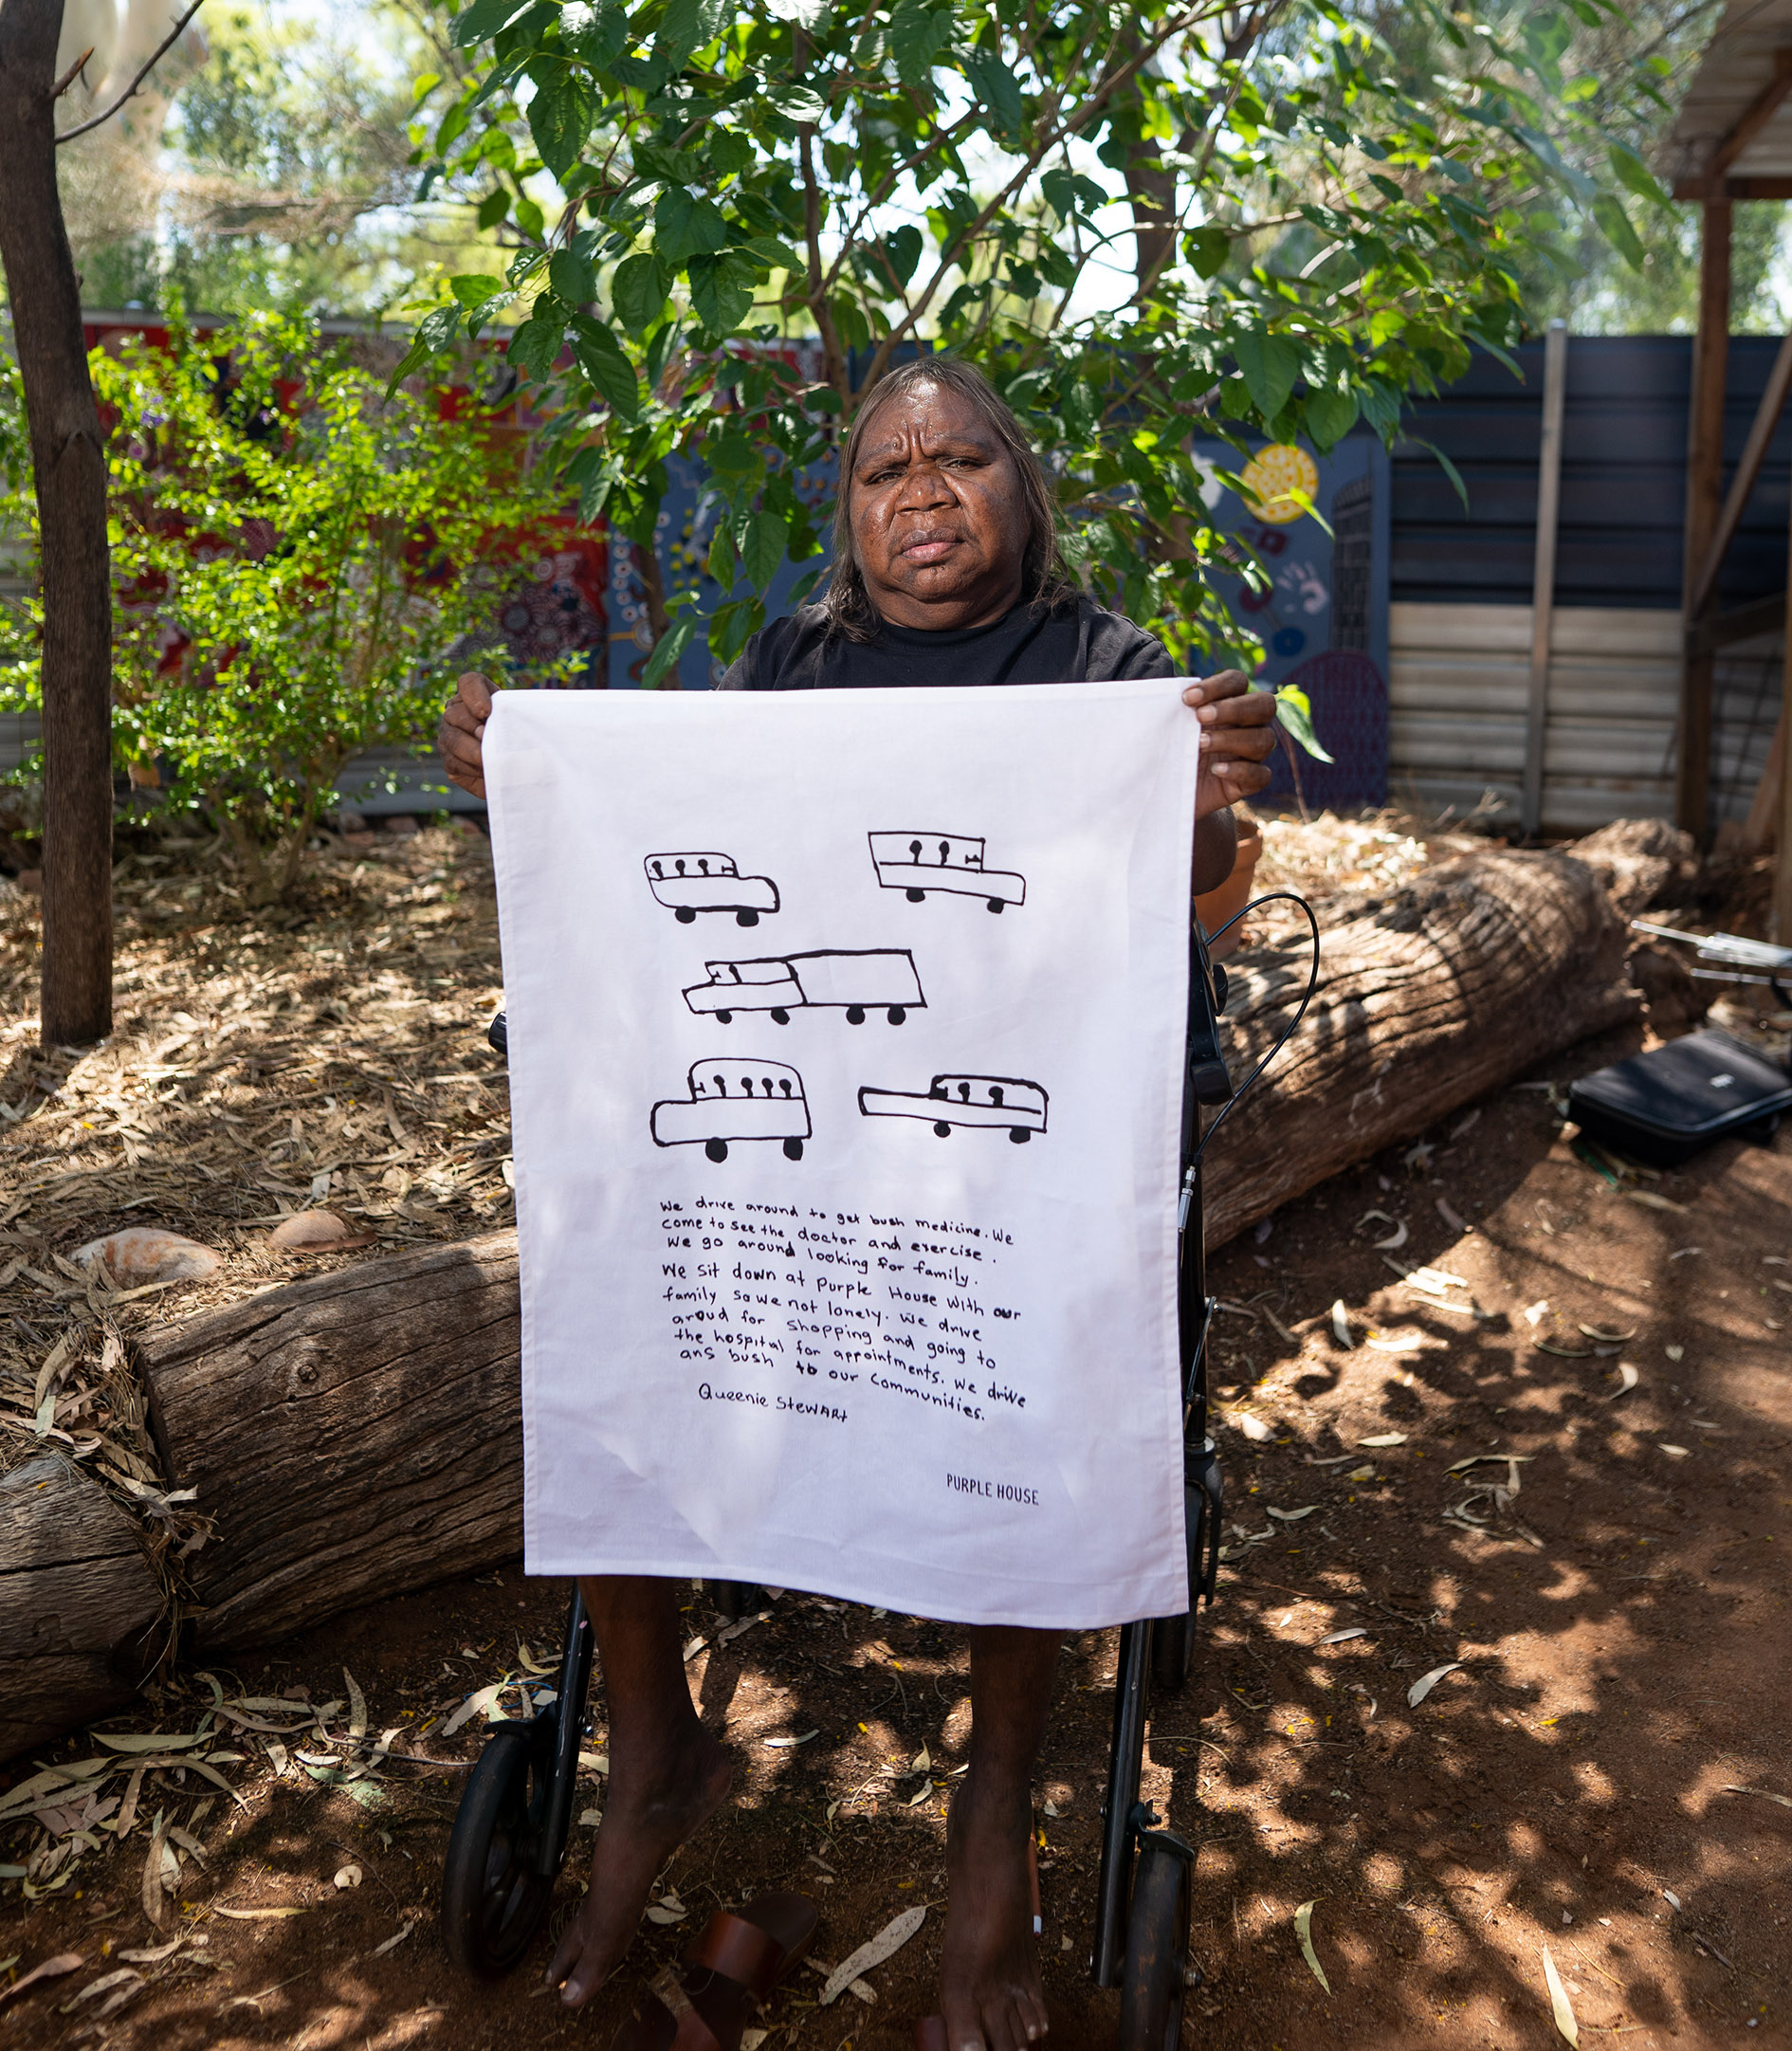 We drive around to get bush medicine. We
come to see the doctor and exercise.
We go around looking for family.
We sit down at Purple House with our
family so we not lonely. We drive
aroud for shopping and going to
the hospital for appointments. We drive
ans bush to our Communities.
Queenie StewARt
PURPLE HOUSE